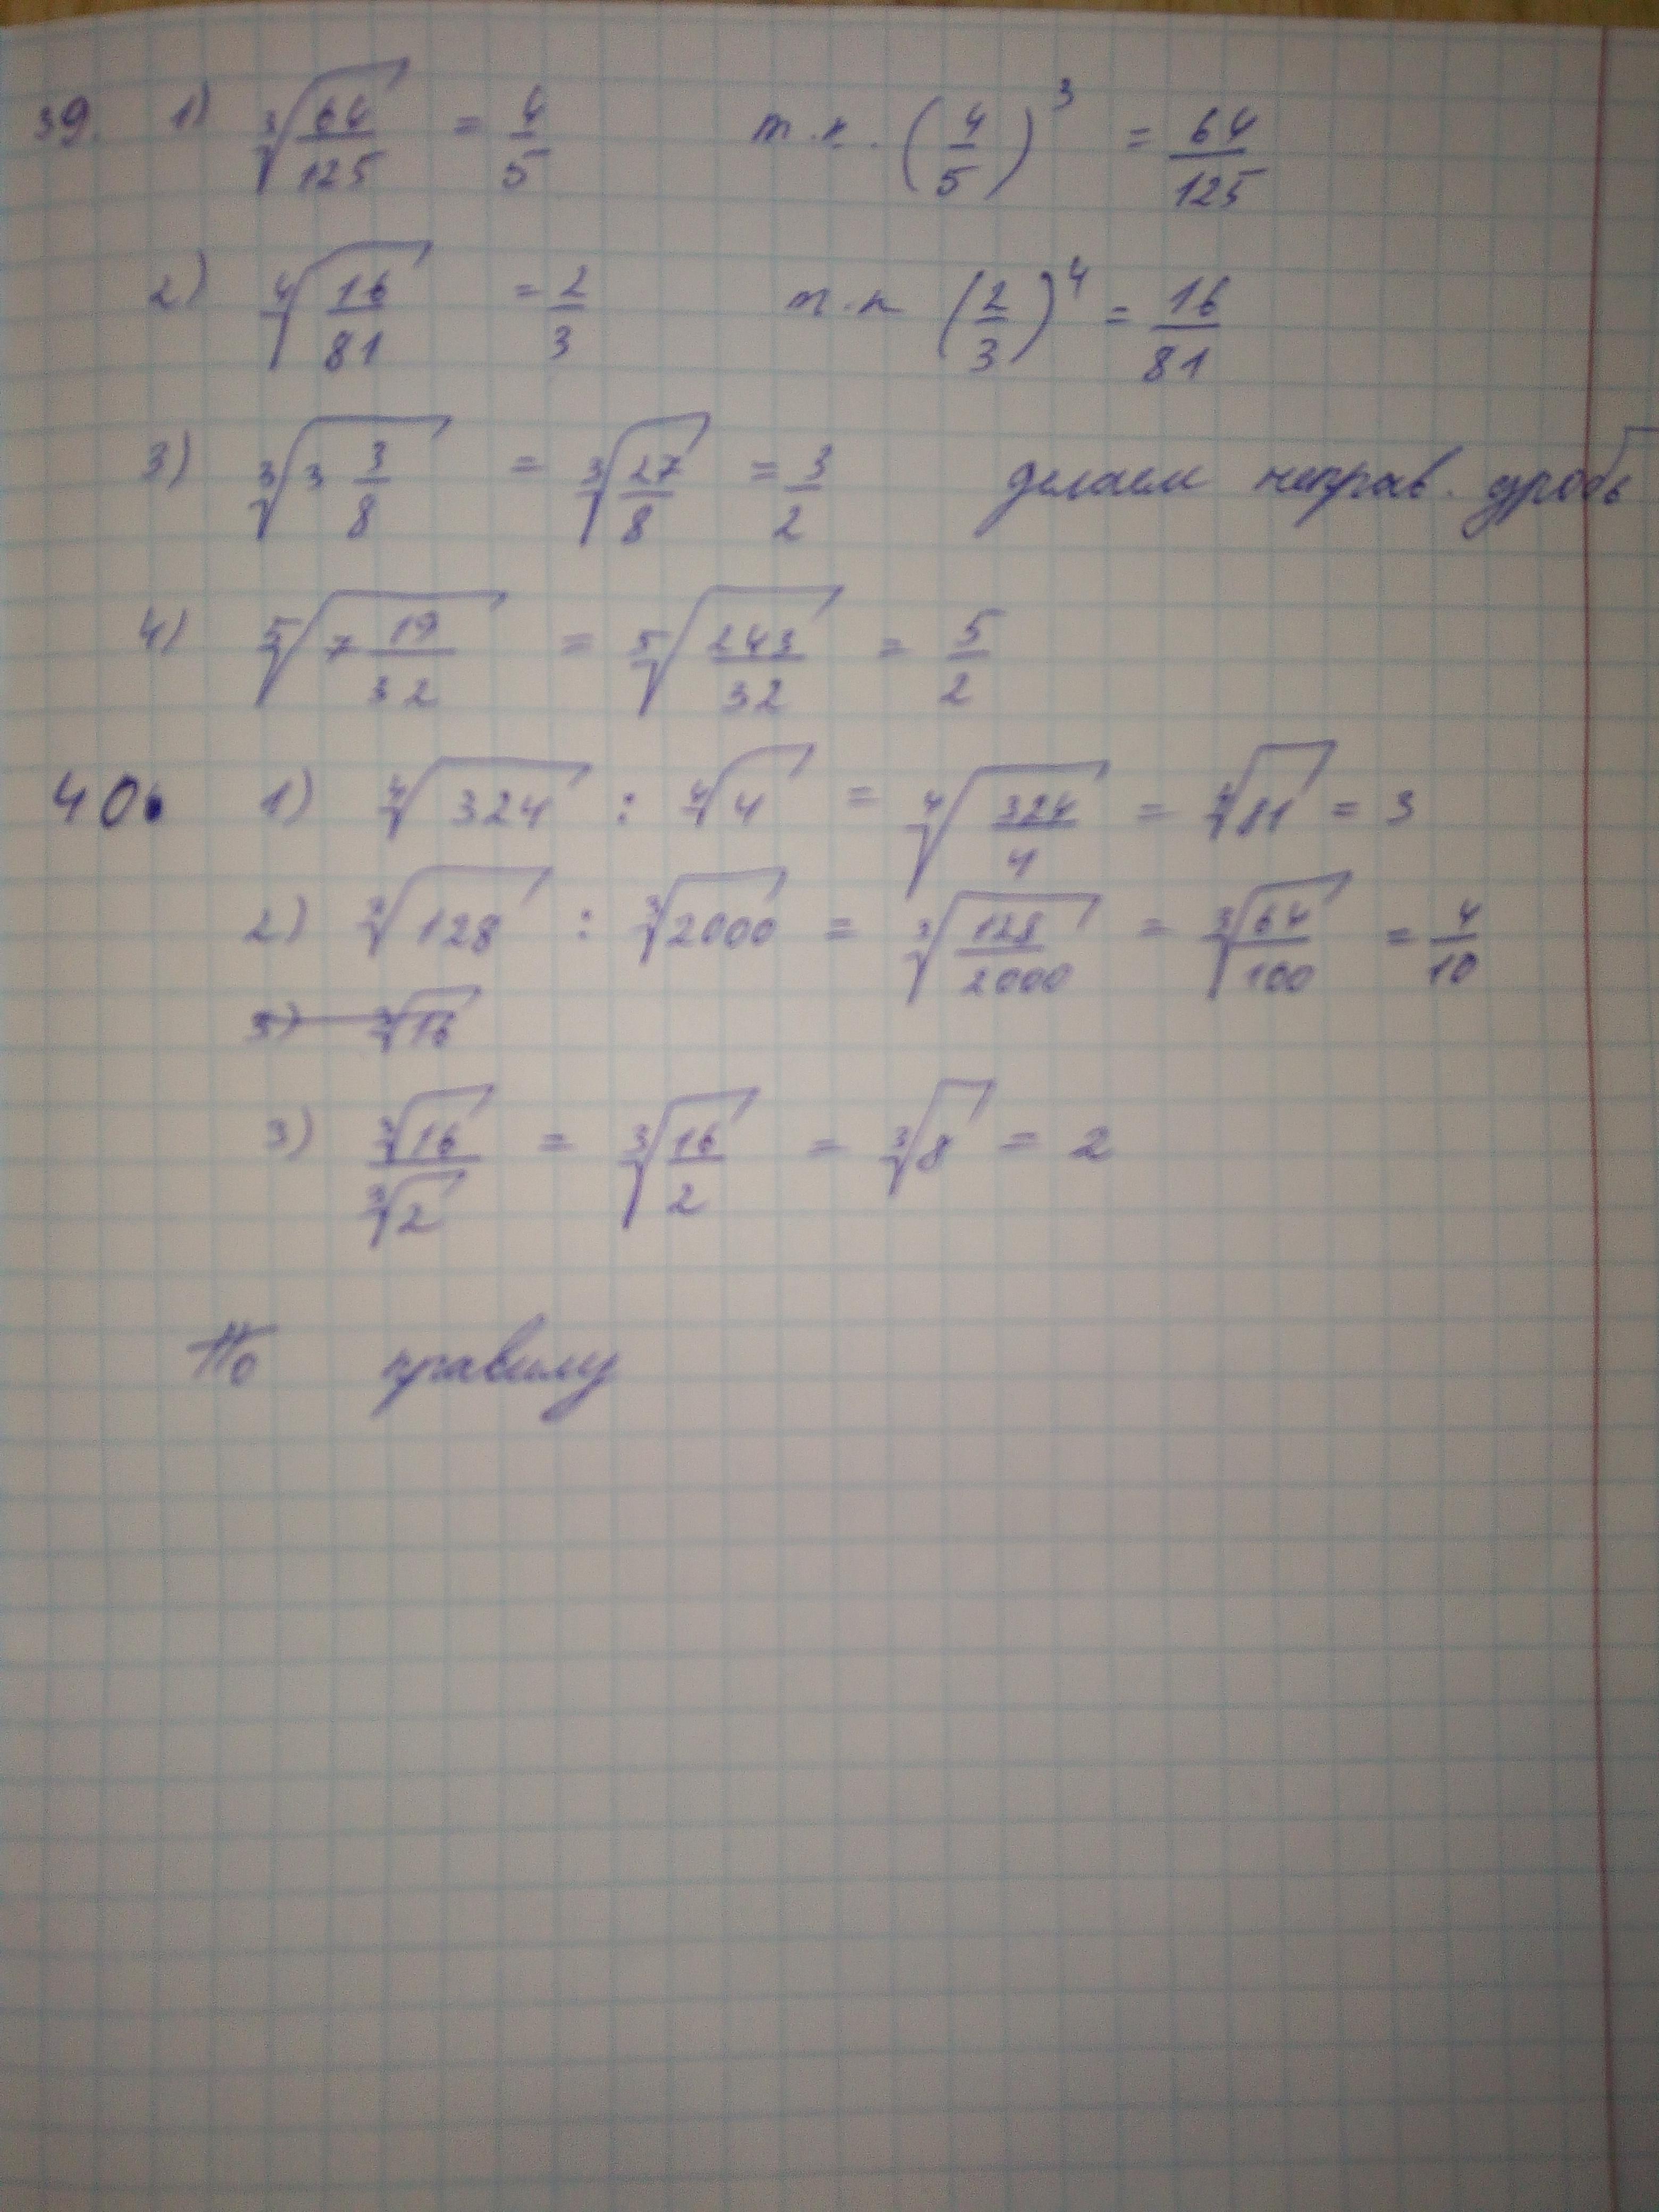 39. 1) ∛(64/125) = 4/5 т.к. (4/5)³ = 64/125
2) ∜(16/81) = 2/3 т.к (2/3)⁴ = 16/81
3) ∛(3 3/8) = ∛(27/8) = 3/2 делаем неправ. дробь
4) ⁵√(7 19/32) = ⁵√(243/32) = 5/2
40. 1) ∜324 : ∜4 = ∜(324/4) = ∜81 = 3
2) ∛128 : ∛2000 = ∛(128/2000) = ∛(64/100) = 4/10
3) ∛16
3) ∛16/∛2 = ∛(16/2) = ∛8 = 2
По правилу